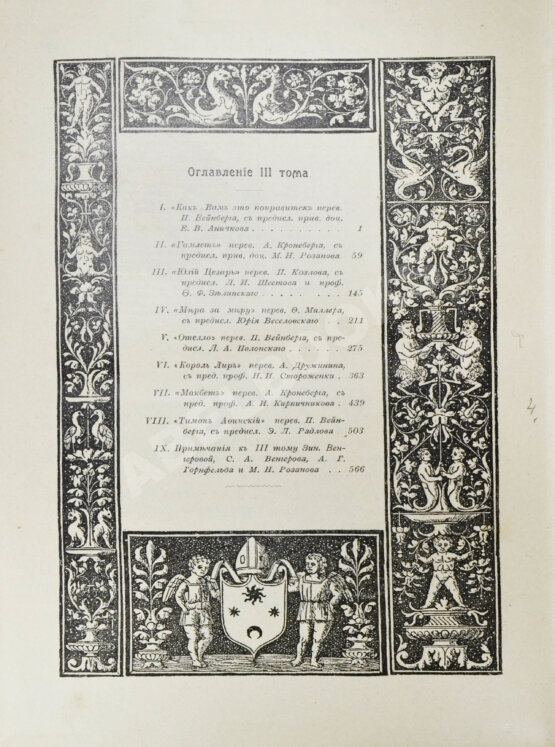 Оглавленіе III тома
I. «Какъ Вамъ это понравится» перев.
П. Вейнберга, съ предисл. прив. доц.
Е. В. Аничкова . . . . . . . . 1
II. «Гамлетъ» перев. А. Кронеберга, съ
предисл. прив. доц. М. Н. Розанова 59
III. «Юлій Цезарь» перев. П. Козлова, съ
предисл. Л. И. Шестова и проф.
Ѳ. Ф. Зѣлинскаго . . . . . . . 145
IV. «Мѣра за мѣру» перев. Ѳ. Миллера,
съ предисл. Юрія Веселовскаго . . 211
V. «Отелло» перев. П. Вейнберга, съ пре-
дисл. Л. А. Полонскаго . . . . . . 275
VI. «Король Лиръ» перев. А. Дружинина,
съ пред. проф. Н. И. Стороженки . 363
VII. «Макбетъ» перев. А. Кронеберга, съ
пред. проф. А. И. Кирпичникова . 439
VIII. «Тимонъ Аѳинскій» перев. П. Вейн-
берга, съ предисл. Э. Л. Радлова 503
IX. Примѣчанія къ III тому Зин. Вен-
геровой, С. А. Венгерова, А. Г.
Горнфельда и М. Н. Розанова . . 566
4.